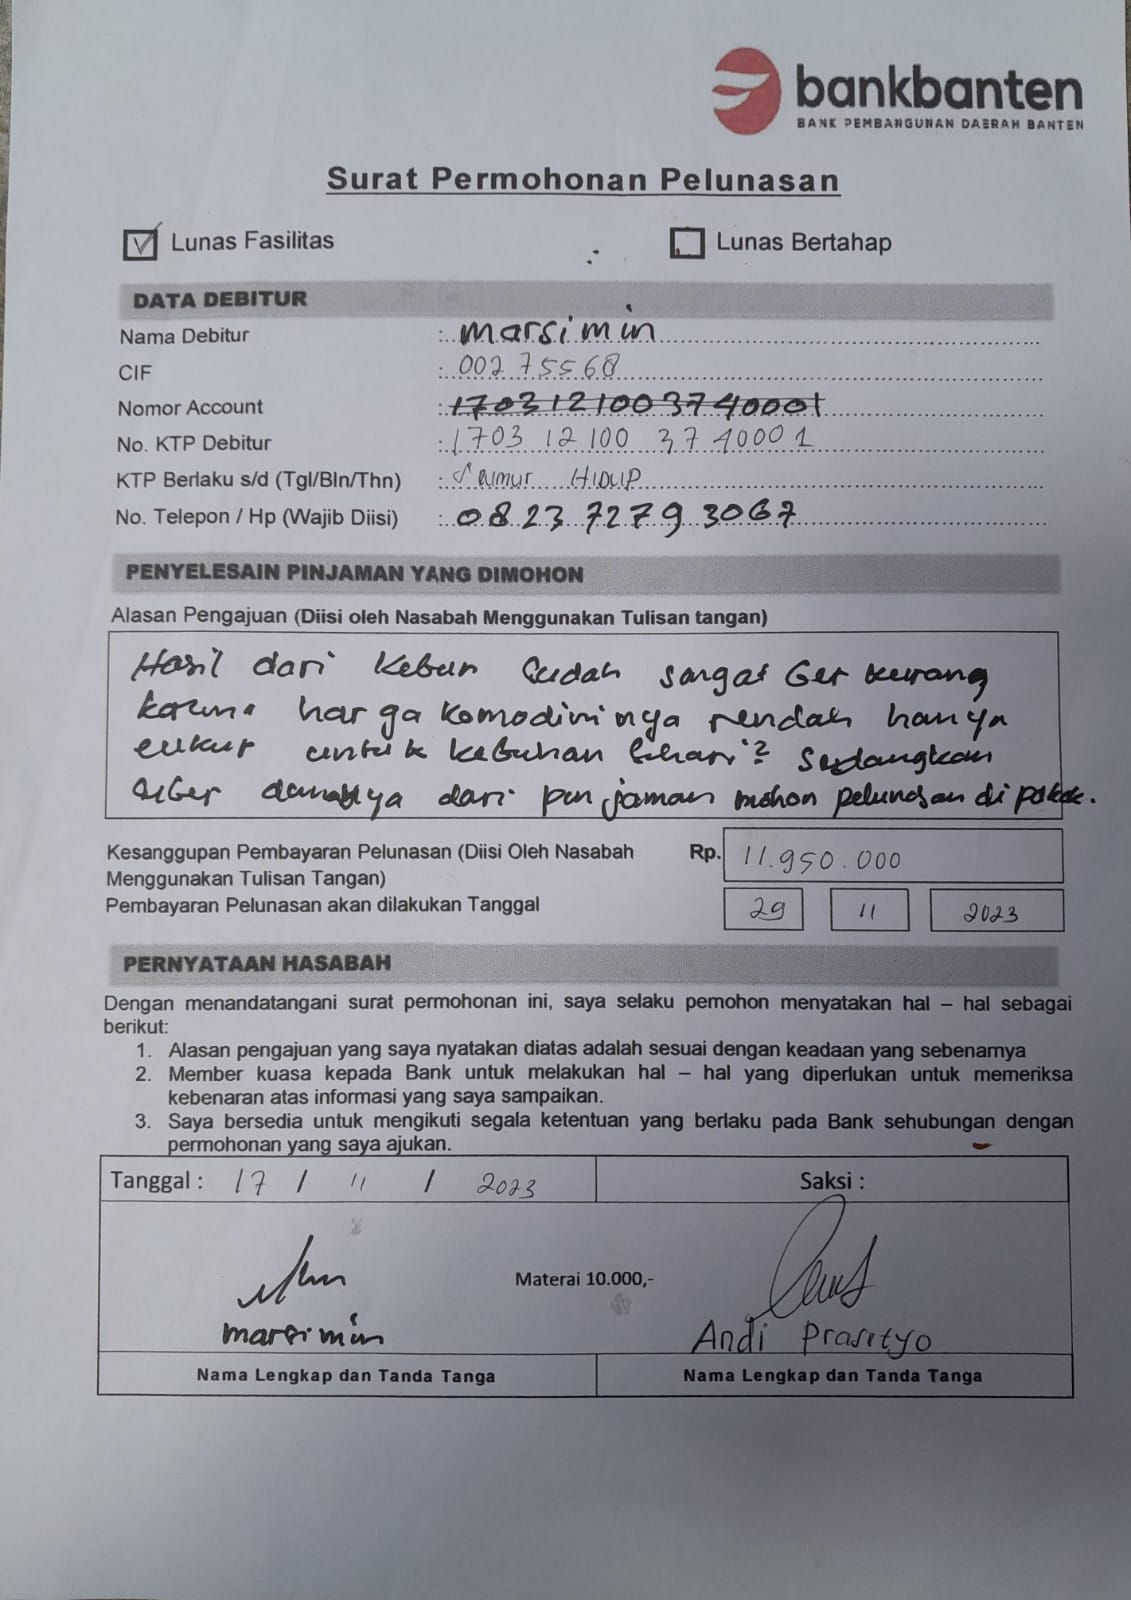 bankbanten
BANK PEMBANGUNAN DAERAH BANTEN
Surat Permohonan Pelunasan
Lunas Fasilitas
Lunas Bertahap
DATA DEBITUR
Nama Debitur : marsimin
CIF : 00275568
Nomor Account : 1703121003740001
No. KTP Debitur : 1703 12 100 3740001
KTP Berlaku s/d (Tgl/Bln/Thn) : HIDUP
No. Telepon / Hp (Wajib Diisi) : 0823 7279 3067
PENYELESAIN PINJAMAN YANG DIMOHON
Alasan Pengajuan (Diisi oleh Nasabah Menggunakan Tulisan tangan)
Hasil dari Kebun Sudah sangat Ber kurang
harga Komodininya rendah hanya
untuk kebuhan sedangkan
dari pinjaman mohon pelunasan di pokok.
Kesanggupan Pembayaran Pelunasan (Diisi Oleh Nasabah Rp. 11.950.000
Menggunakan Tulisan Tangan)
Pembayaran Pelunasan akan dilakukan Tanggal 29 11 2023
PERNYATAAN HASABAH
Dengan menandatangani surat permohonan ini, saya selaku pemohon menyatakan hal – hal sebagai
berikut:
1. Alasan pengajuan yang saya nyatakan diatas adalah sesuai dengan keadaan yang sebenarnya
2. Member kuasa kepada Bank untuk melakukan hal – hal yang diperlukan untuk memeriksa
kebenaran atas informasi yang saya sampaikan.
3. Saya bersedia untuk mengikuti segala ketentuan yang berlaku pada Bank sehubungan dengan
permohonan yang saya ajukan.
Tanggal : 17 / 11 / 2023
Saksi :
Materai 10.000,-
marsimin
Andi Prasetyo
Nama Lengkap dan Tanda Tanga
Nama Lengkap dan Tanda Tanga